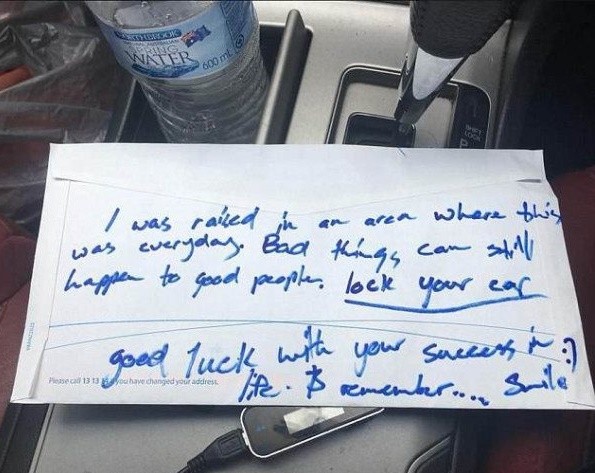 NORTHBROOK
SPRING
WATER
600 mL
I was raised in an area where this
was everyday. Bad things can still
happen to good people. lock your car
good luck with your success in :)
life. & remember.... Smile
Please call 13 13 you have changed your address.